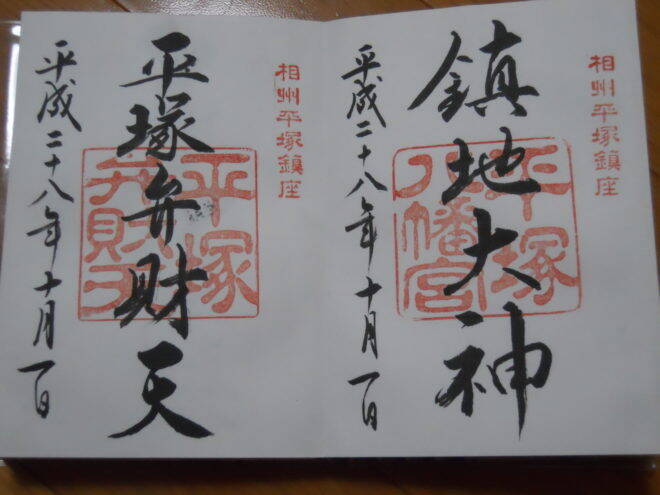 相州平塚鎮座
鎮地大神
平塚八幡宮
平成二十八年十月一日
相州平塚鎮座
平塚弁財天
平塚弁財天
平成二十八年十月一日